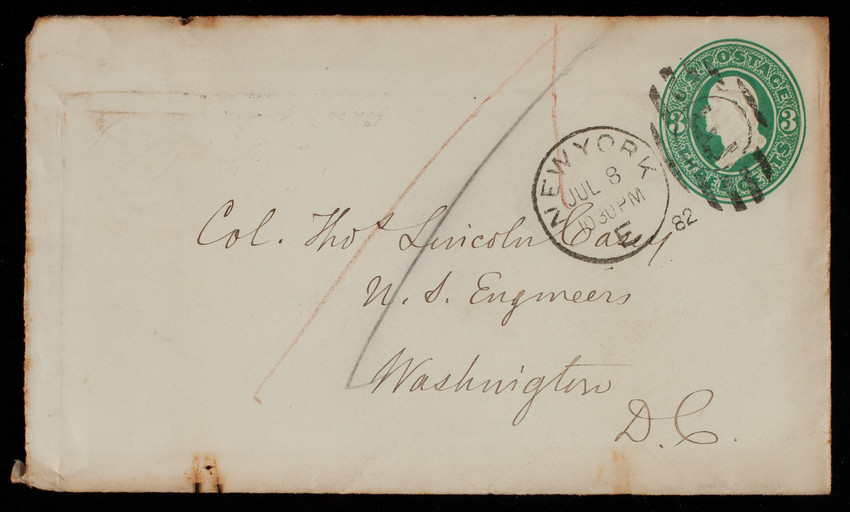 U.S. POSTAGE
3 3
THREE CENTS
NEW YORK
JUL 8
1030PM
E
82
Col. Thos Lincoln Casey
U. S. Engineers
Washington
D. C.